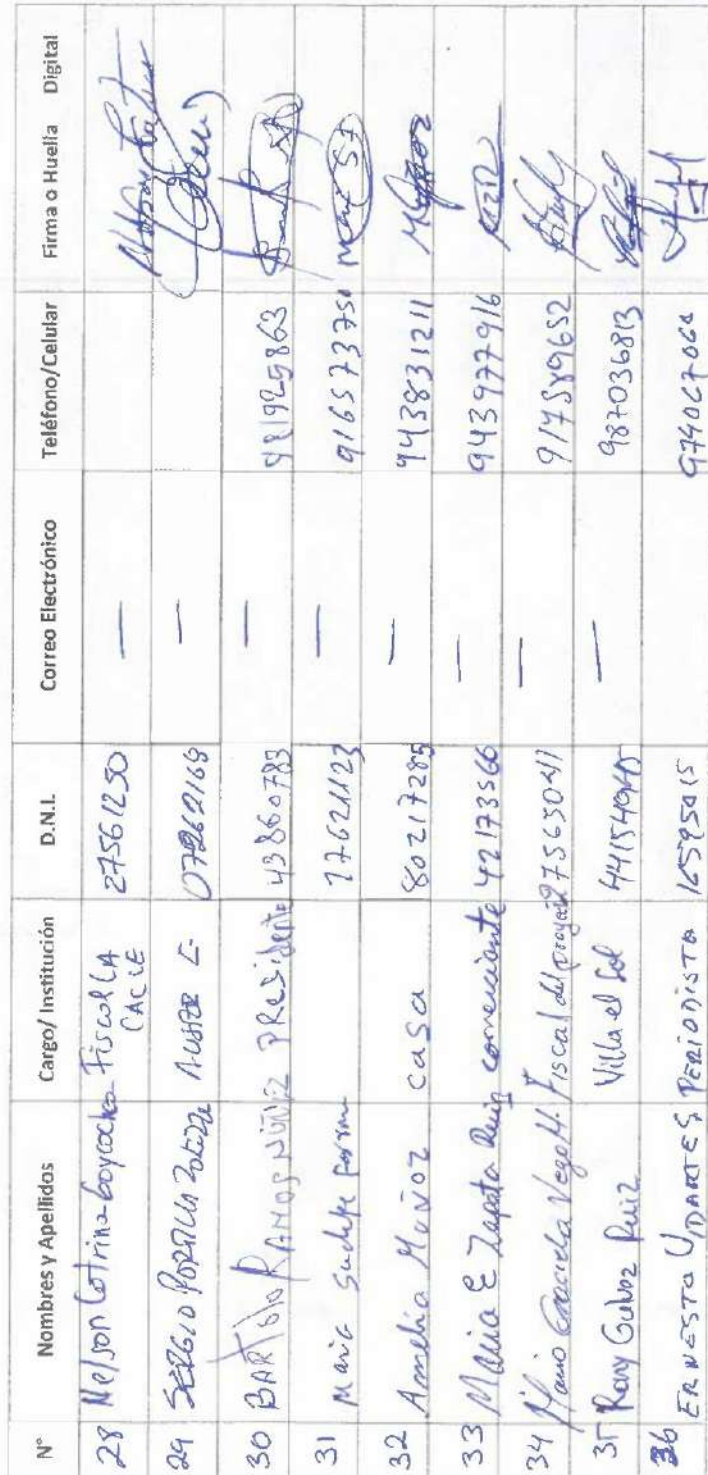 N° Nombres y Apellidos Cargo/ Institución D.N.I. Correo Electrónico Teléfono/Celular Firma o Huella Digital
28 Nelson Cotrina Goycochea Fiscal LA CALLE 27561250 —
29 SERGIO PORTILLA 07262168 —
30 BARTOLO RAMOS NÚÑEZ PRESIDENTE 43860783 — 981925863
31 Maria 27621123 — 916573750
32 Amelia Muñoz casa 80217285 — 943831211
33 Maria E Zapata Ruiz comerciante 42173566 — 943977916
34 Maria Graciela Vega H. Fiscal del proyecto 75650041 — 917589652
35 Rony Galvez Ruiz Villa el Sol — 987036813
36 ERNESTO UDARTES PERIODISTA 16595015